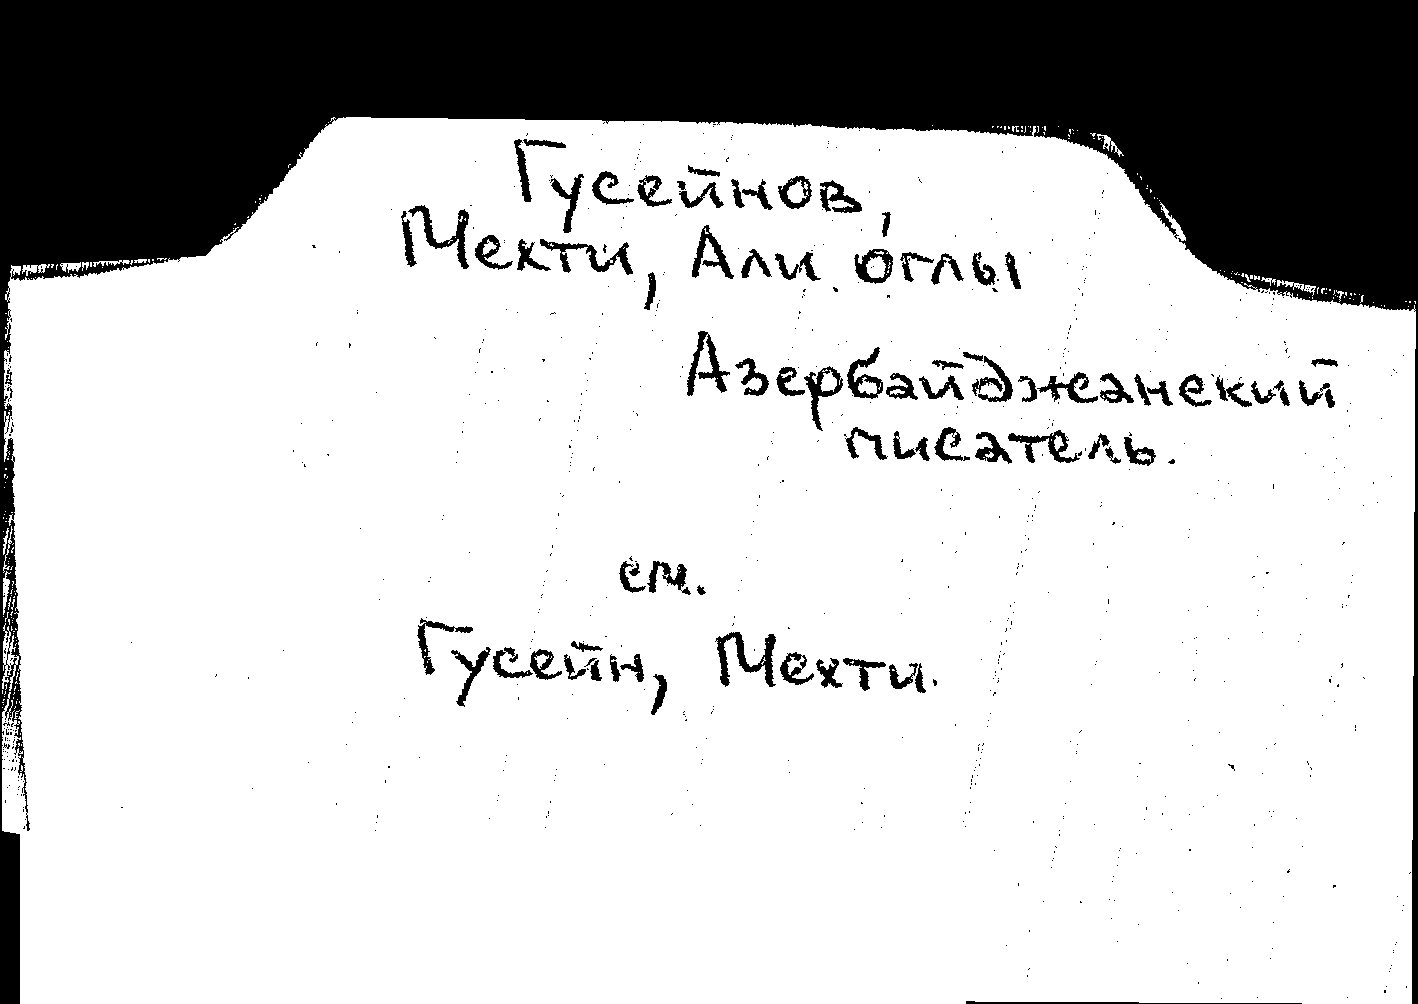 Гусейнов,
Мехти, Али оглы
Азербайджанский
писатель.
см.
Гусейн, Мехти.